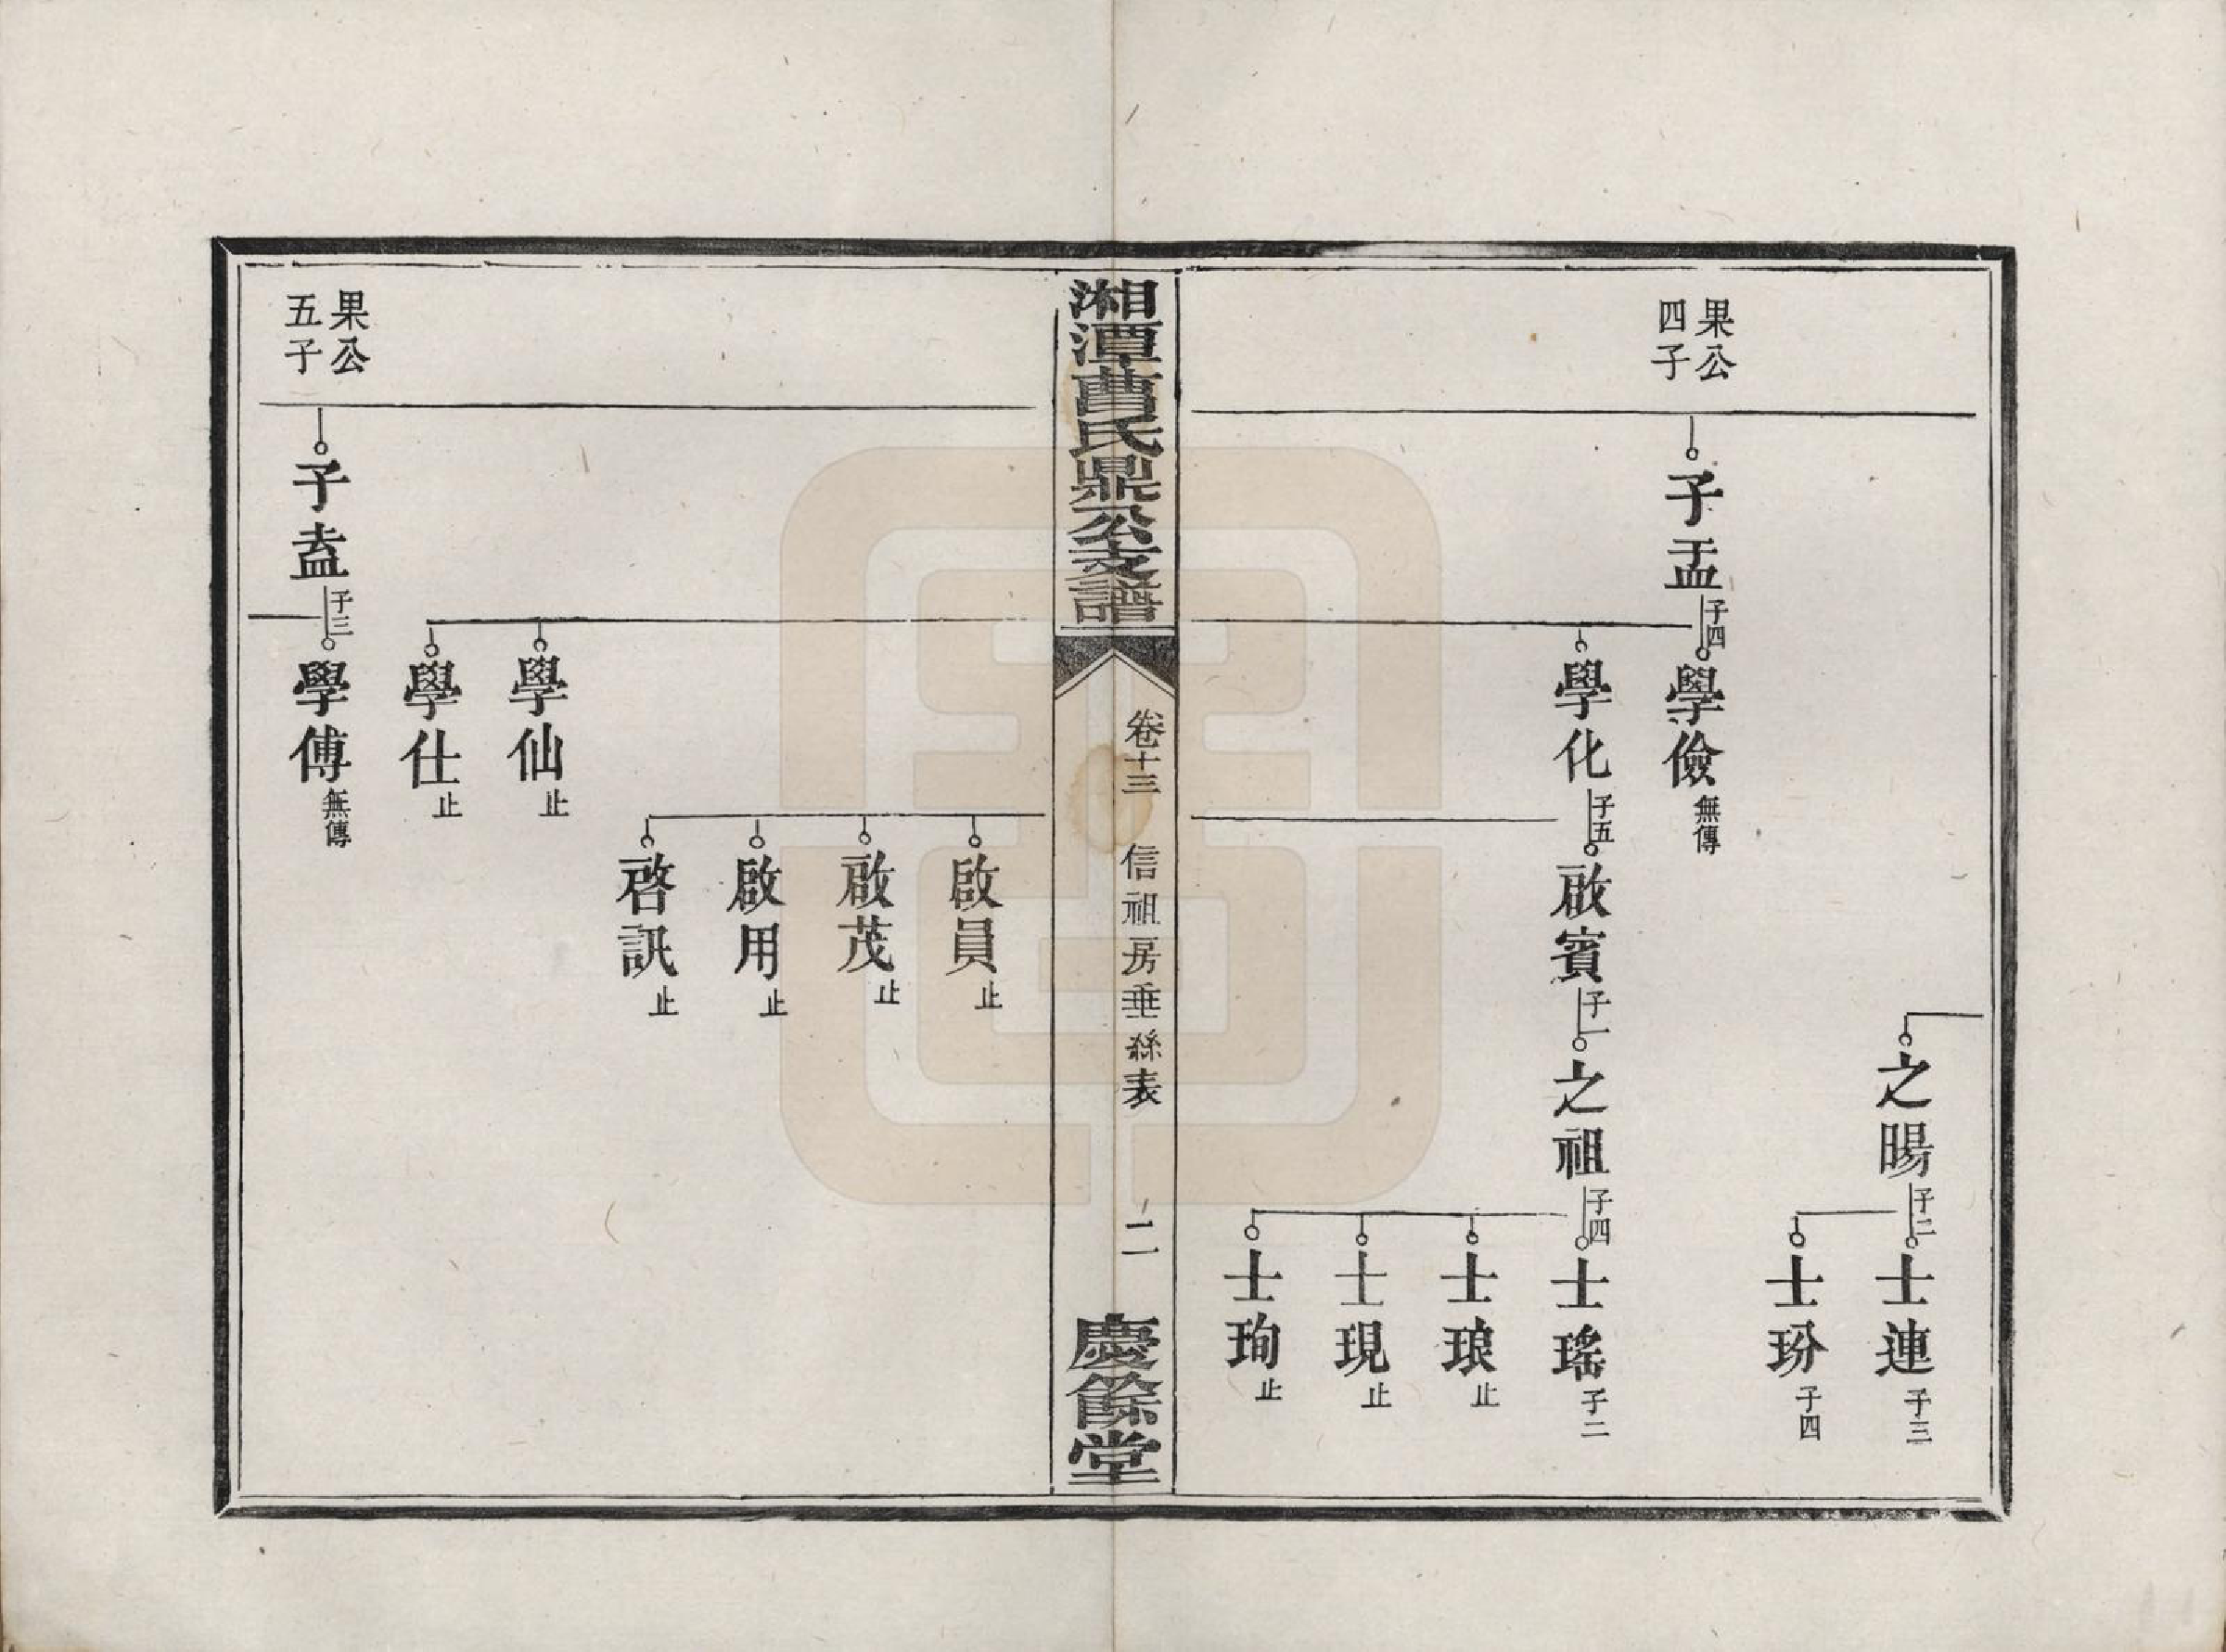 之暘 子二
士連 子三
士玢 子四
果公
四子
子盂 子四
學儉 無傳
學化 子五
啟賓 子一
之祖 子四
士瑤 子二
士琅 止
士現 止
士珣 止
湘潭曹氏鼎公支譜
卷十三 信祖房垂絲表 二
慶餘堂
啟員 止
啟茂 止
啟用 止
啓訊 止
學仙 止
學仕 止
果公
五子
子盍 子三
學傅 無傳